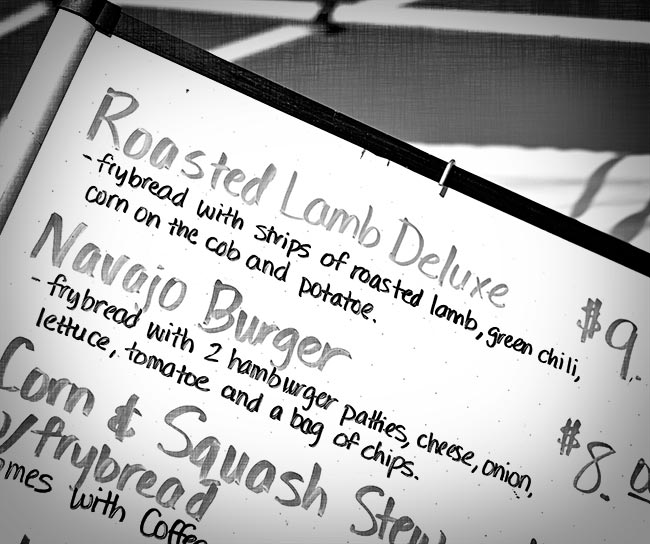 Roasted Lamb Deluxe $9.
- frybread with strips of roasted lamb, green chili,
corn on the cob and potatoe.
Navajo Burger $8.
- frybread with 2 hamburger patties, cheese, onion,
lettuce, tomatoe and a bag of chips.
Corn & Squash Stew
w/frybread
with